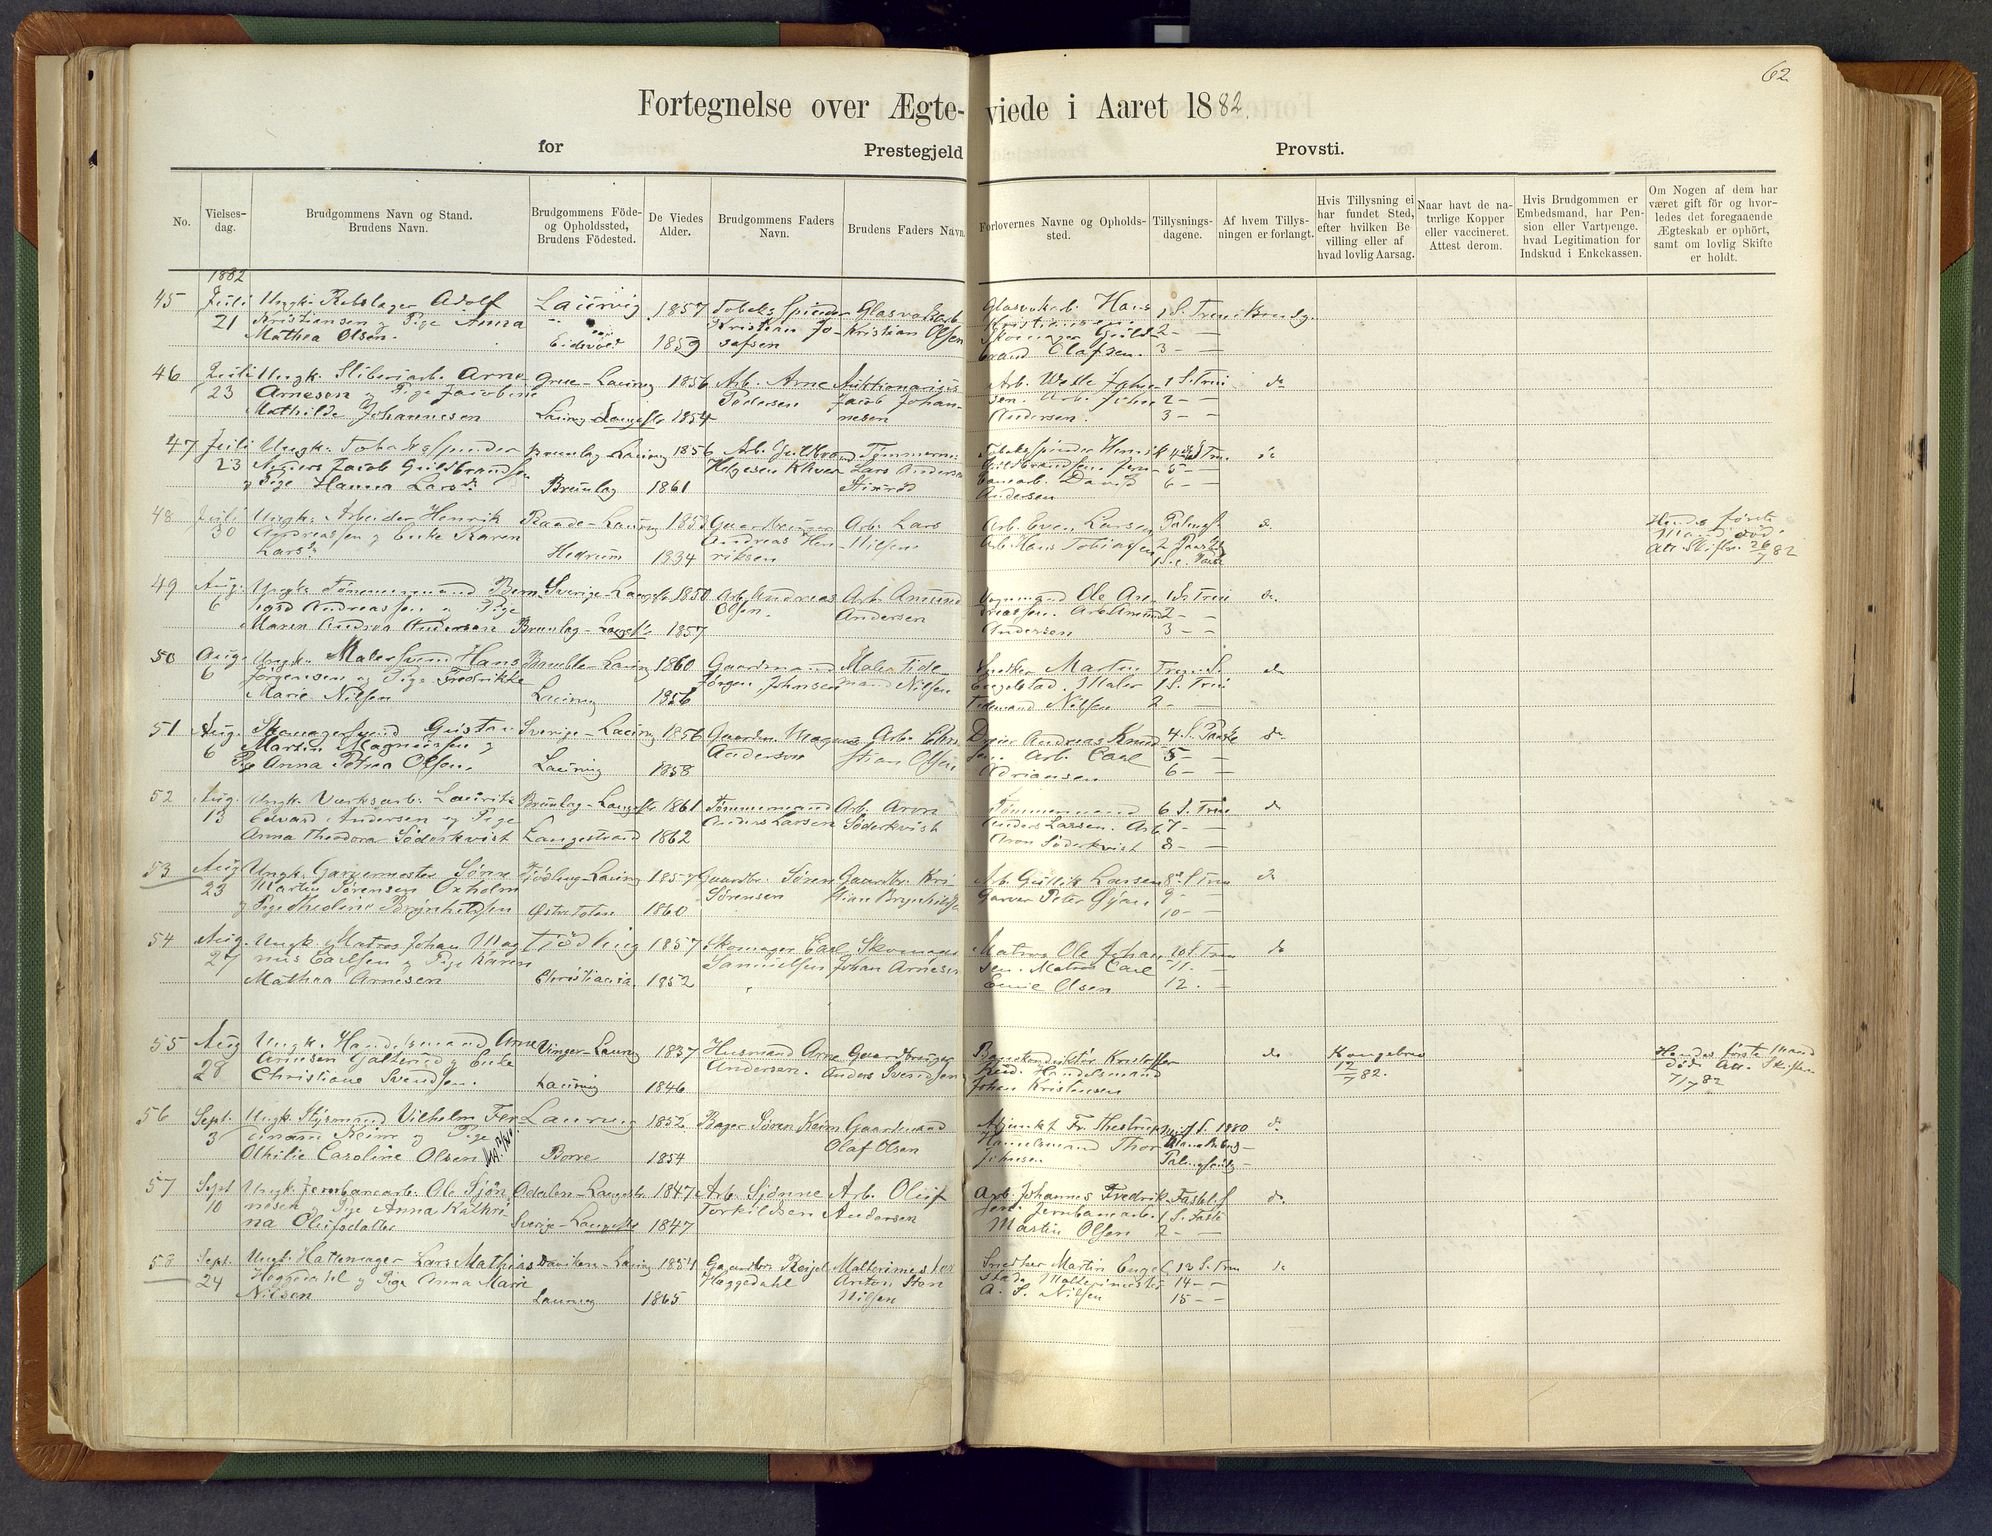 62
Fortegnelse over Ægteviede i Aaret 1882.
for Prestegjeld Provsti.
No.
Vielses-
dag.
Brudgommens Navn og Stand.
Brudens Navn.
Brudgommens Föde-
og Opholdssted,
Brudens Födested.
De Viedes
Alder.
Brudgommens Faders
Navn.
Brudens Faders Navn.
Forlovernes Navne og Opholds-
sted.
Tillysnings-
dagene.
Af hvem Tillys-
ningen er forlangt.
Hvis Tillysning ei
har fundet Sted,
efter hvilken Be-
villing eller af
hvad lovlig Aarsag.
Naar havt de na-
turlige Kopper
eller vaccineret.
Attest derom.
Hvis Brudgommen er
Embedsmand, har Pen-
sion eller Vartpenge.
hvad Legitimation for
Indskud i Enkekassen.
Om Nogen af dem har
været gift för og hvor-
ledes det foregaaende
Ægteskab er ophört,
samt om lovlig Skifte
er holdt.
1882
45 Juli Ungk. Rebslager Adolf Laurvig 1857 Glasværkarb. Hans 1 S. Trin Brudg.
21 Kristiansen og Pige Anna Kristian Jo- Kristian Olsen 2 - -
Mathea Olsen. Eidsvold 1859 safsen Olafsen. 3 - -
46 Juli Ungk. Sliberiarb. Arne Grue-Laurvig 1856 Arb. Arne 1 S. Trin do
23 Arnesen og Pige Jacobine Pedersen Jacob Johan- sen. Arb. Johan 2 - -
Mathilde Johannesen Laurvig-Langestr. 1854 nesen Andersen. 3 - -
47 Juli Ungk. Tobakspinder Brunlag-Laurvig 1856 Arb. Guldbrand Tømmerm. Tobakspinder Henrik 4 S. Trin do
23 Anders Jacob Guldbrandsen Helgesen Lars Andersen Guldbrandsen. Jern- 5 - -
og Pige Hanna Larsd. Brunlag 1861 banearb. David 6 - -
Andersen
48 Juli Ungk. Arbeider Henrik Raade-Laurvig 1853 Gaardbruger Arb. Lars Arb. Even Larsen Palmes. do Hendes første
30 Andreassen og Enke Karen Andreas Hen- Nilsen Arb. Hans Tobiassen 2 Paaskd. Mand død.
Larsd. Hedrum 1834 riksen Att. Skifter. 26/7 82
49 Aug. Ungk. Tømmermand Bern- Sverige-Langestr. 1850 Arb. Andreas Arb. Amund Ole An- 1 S. Trin do
6 hard Andreassen og Pige Olsen. Andersen dreassen. Arb. Amund 2 - -
Maren Andrea Andersen Brunlag-Langestr. 1857 Andersen 3 - -
50 Aug. Ungk. Malersvend Hans Bamble-Laurvig 1860 Gaardmand Maler Tide- Snedker Martin Trin. S. do
6 Jørgensen og Pige Fredrikke Jørgen Johnsen mand Nilsen Engelstad. Maler 1 S. Trin
Marie Nilsen Laurvig 1856 Tidemand Nilsen 2 -
51 Aug. Skomagersvend Gustav Sverige-Laurvig 1856 Gaardm. Magnus Arb. Chri- Dreier Andreas Knud- 4 S. Paaske do
6 Martin Magnussen og Anderson stian Olsen sen. Arb. Carl 5 - -
Pige Anna Petrea Olsen. Laurvig 1858 Adriansen 6 - -
52 Aug. Ungk. Værksarb. Lauritz Brunlag-Langestr. 1861 Tømmermand Arb. Aron Tømmermand 6 S. Trin do
13 Edvard Andersen og Pige Anders Larsen Söderkvist Anders Larsen. Arb. 7 - -
Anna Theodora Söderkvist Langestrand 1862 Aron Söderkvist 8 - -
53 Aug Ungk. Garvermester Sönne Tjödling-Laurvig 1857 Gaardbr. Sören Gaardbr. Kri- Arb. Gullik Larsen 8 S. Trin do
23 Martin Sørensen Oxholm Sørensen stian Brynhildsen Garver Peter 9 - -
og Pige Thedine Brynhildsen Østretoten 1860 10 - -
54 Aug. Ungk. Matros Johan Mag- Tjödling 1857 Skomager Carl Skomager Matros Ole Johan- 10 S. Trin do
27 nus Carlsen og Pige Karen Samuelsen Johan Arnesen sen. Matros Carl 11 - -
Mathea Arnesen Christiania. 1852 Emil Olsen 12 -
55 Aug Ungk. Handelsmand Arne Vinger-Laurvig 1837 Husmand Arne Gaardbruger Kristoffer do Kongebrev Hendes første Mand
28 Arnesen Galterud og Enke Andersen. Anders Svendsen Rud. Handelsmand 12/7 82. død. Att. Skiften
Christiane Svendsen. Laurvig 1846 Johan Kristensen 7/7 82
56 Sept. Ungk. Styrmand Vilhelm Fer- Laurvig 1852 Bager Søren Keim Gaardmand Adjunkt Fr. Thestrup S. 1880 do
3 dinand Keim og Pige Olaf Olsen Handelsmand Thor
Othilie Caroline Olsen Borre 1854 Johnsen Palmesöndg -
57 Sept Ungk. Jernbanearb. Ole Tjön- Odalen-Langestr. 1847 Arb. Tjönne Arb. Oluf Arb. Johannes Fredrik- Fastel. S do
10 nesen og Pige Anna Kathri- Torkildsen Andersen sen. Jernbanearb. 1 S. Faste
na Olufsdatter Sverige-Langestr. 1847 Martin Olsen 2 - -
58 Sept. Ungk. Hattemager Lars Mathias Laurvig 1854 Gaardbr. Reijel Maltermester Snedker Martin Engel- 13 S. Trin do
24 Heggedahl og Pige Anna Marie Heggedahl Anton Sten stad. Maltermester 14 - -
Nilsen Laurvig 1865 Nilsen A. S. Nilsen 15 - -